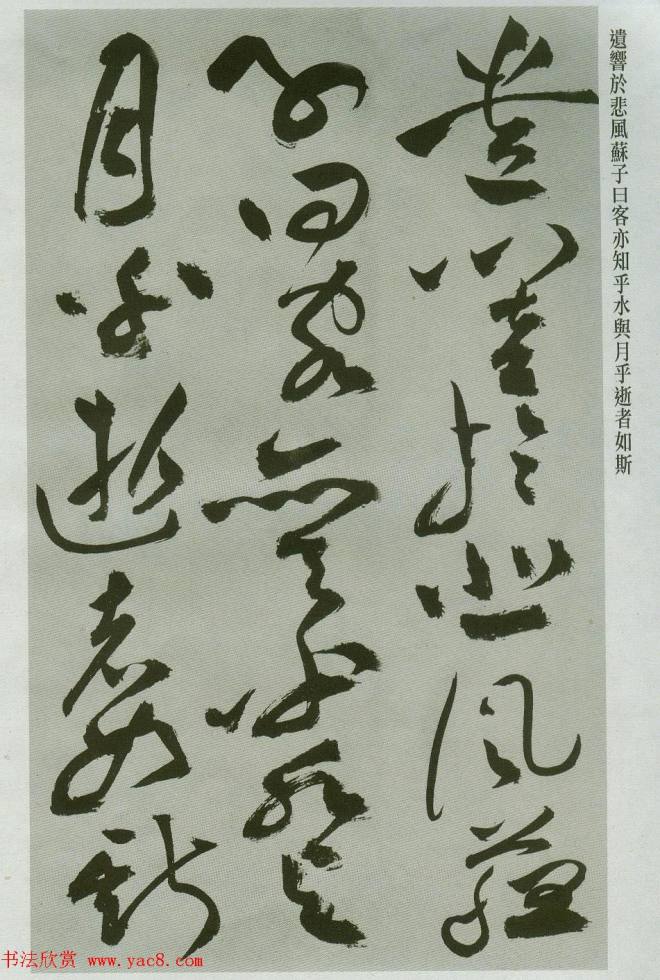 遺響於悲風蘇子曰客亦知乎水與月乎逝者如斯
遺響於悲風蘇
子曰客亦知乎水與
月乎逝者如斯
书法欣赏 www.yac8.com